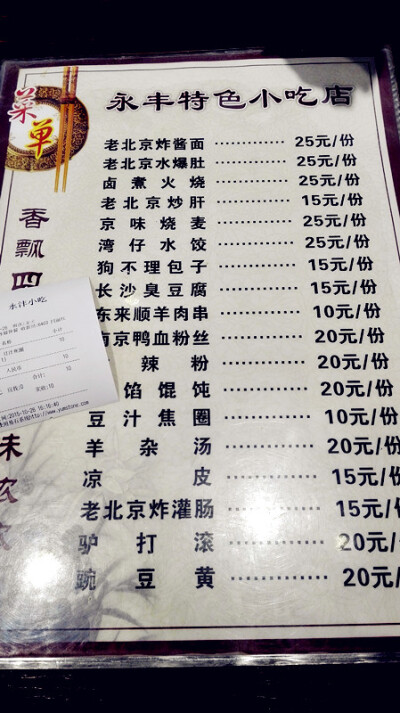 菜单
永丰特色小吃店
老北京炸酱面 25元/份
老北京水爆肚 25元/份
卤煮火烧 25元/份
老北京炒肝 15元/份
京味烧麦 25元/份
湾仔水饺 25元/份
狗不理包子 15元/份
长沙臭豆腐 15元/份
东来顺羊肉串 10元/份
南京鸭血粉丝 20元/份
辣粉 20元/份
馅馄饨 20元/份
豆汁焦圈 10元/份
羊杂汤 20元/份
凉皮 15元/份
老北京炸灌肠 15元/份
驴打滚 20元/
豌豆黄 20元/
香飘四
味浓
永沣小吃